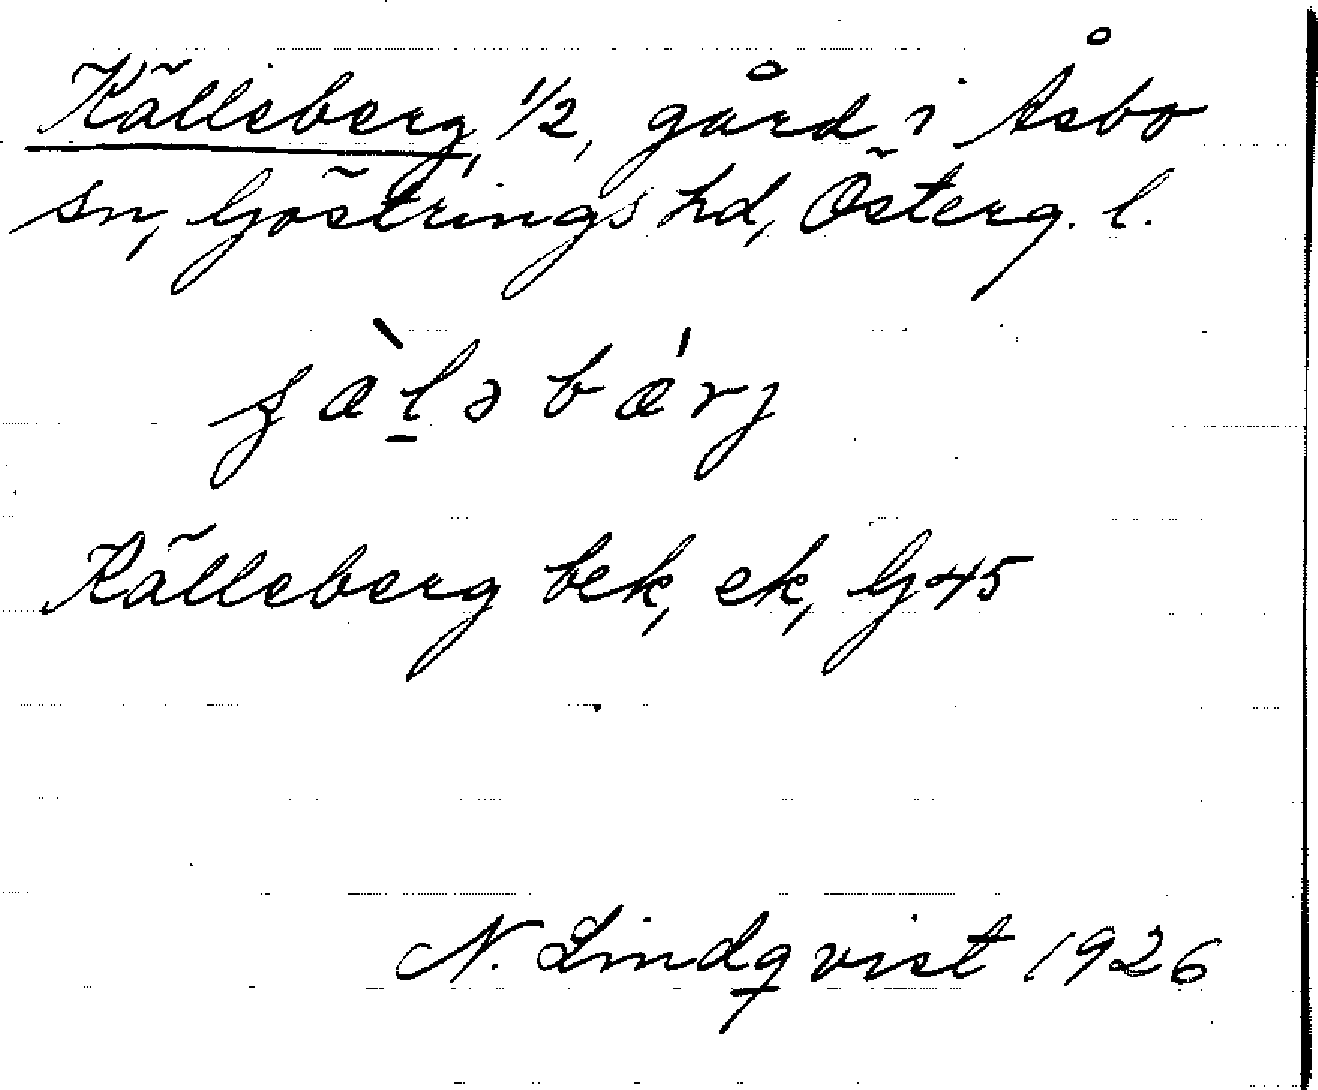 Källeberg 1/2, gård i Åsbo
sn, Göstrings hd, Österg. l.
ʃæ̀l̠əbǽrj
Källeberg bek, ek, G45
N. Lindqvist 1926